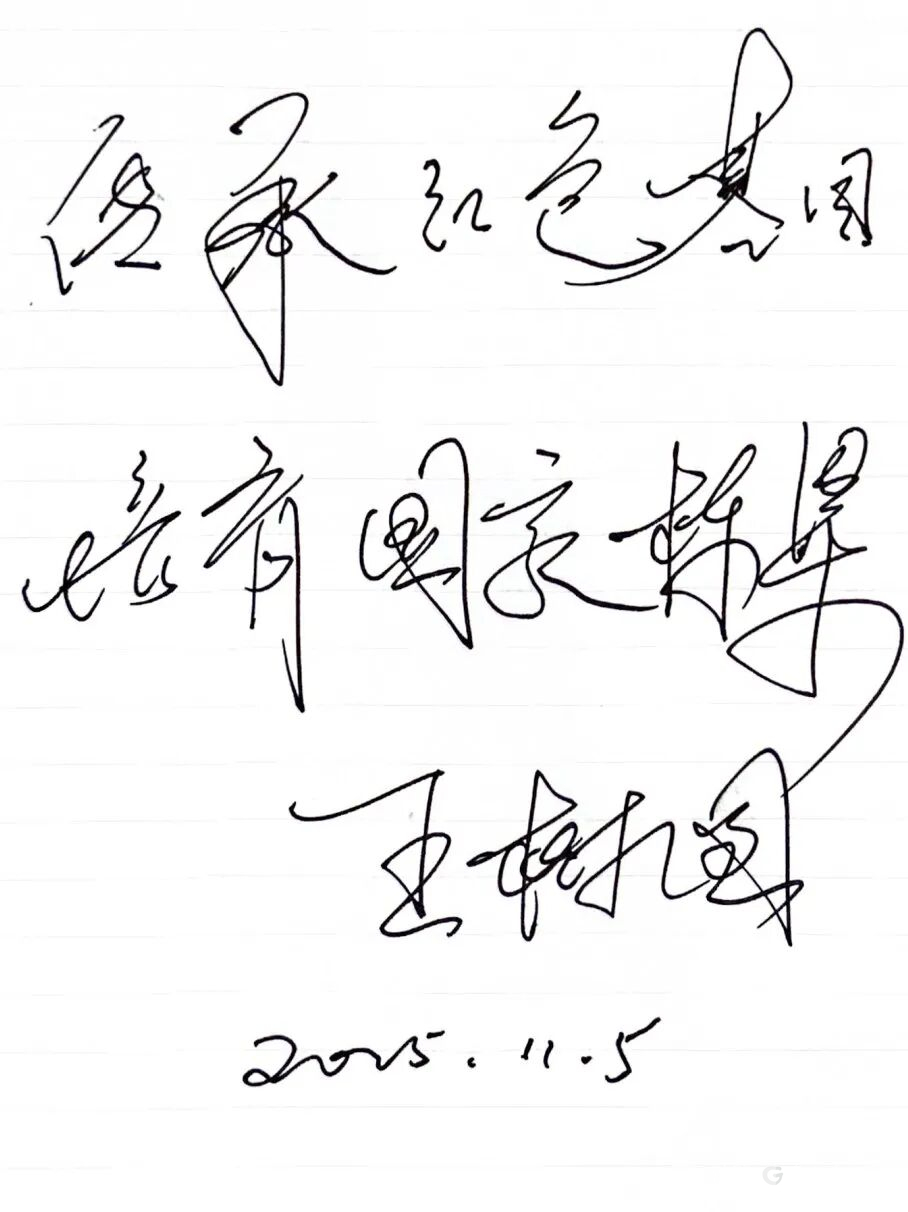 传承红色基因
培育国家栋梁
王树国
2025.11.5